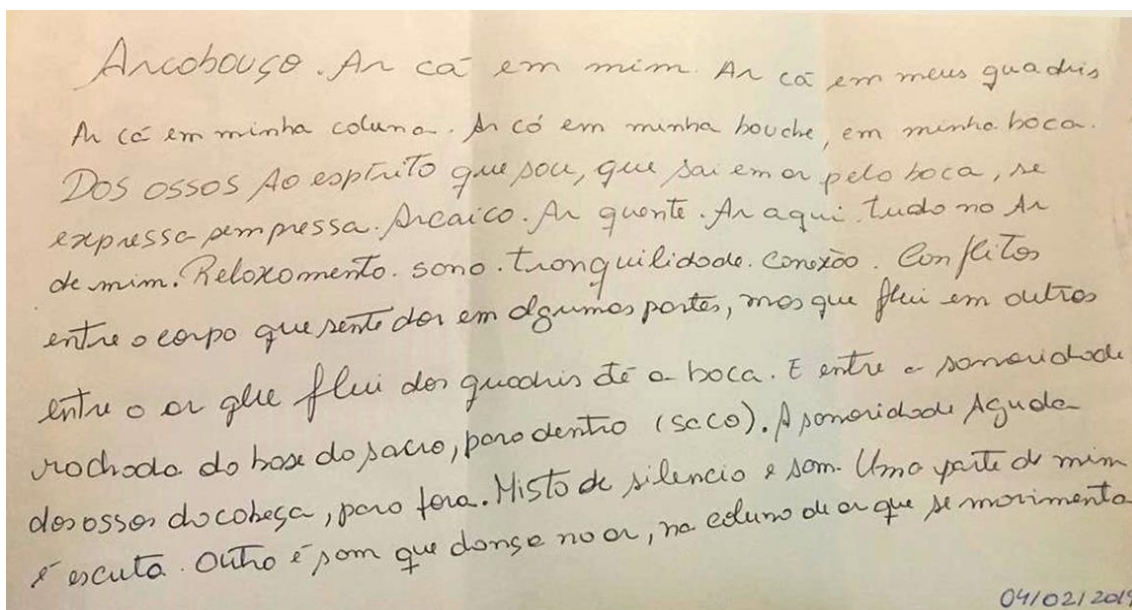 Arcobouço. Ar cá em mim. Ar cá em meus quadris
Ar cá em minha coluna. Ar cá em minha bouche, em minha boca.
Dos ossos ao espírito que sou, que sai em ar pela boca, se
expressa sem pressa. Arcaico. Ar quente. Ar aqui. tudo no Ar
de mim. Relaxamento. sono. tranquilidade. Conexão. Conflitos
entre o corpo que sente dor em algumas partes, mas que flui em outras
entre o ar que flui dos quadris até a boca. E entre a sonoridade
rachada da base do sacro, para dentro (saco). A sonoridade Aguda
dos ossos da cabeça, para fora. Misto de silencio e som. Uma parte de mim
é escuta. Outra é som que dança no ar, na coluna de ar que se movimenta
04/02/2019